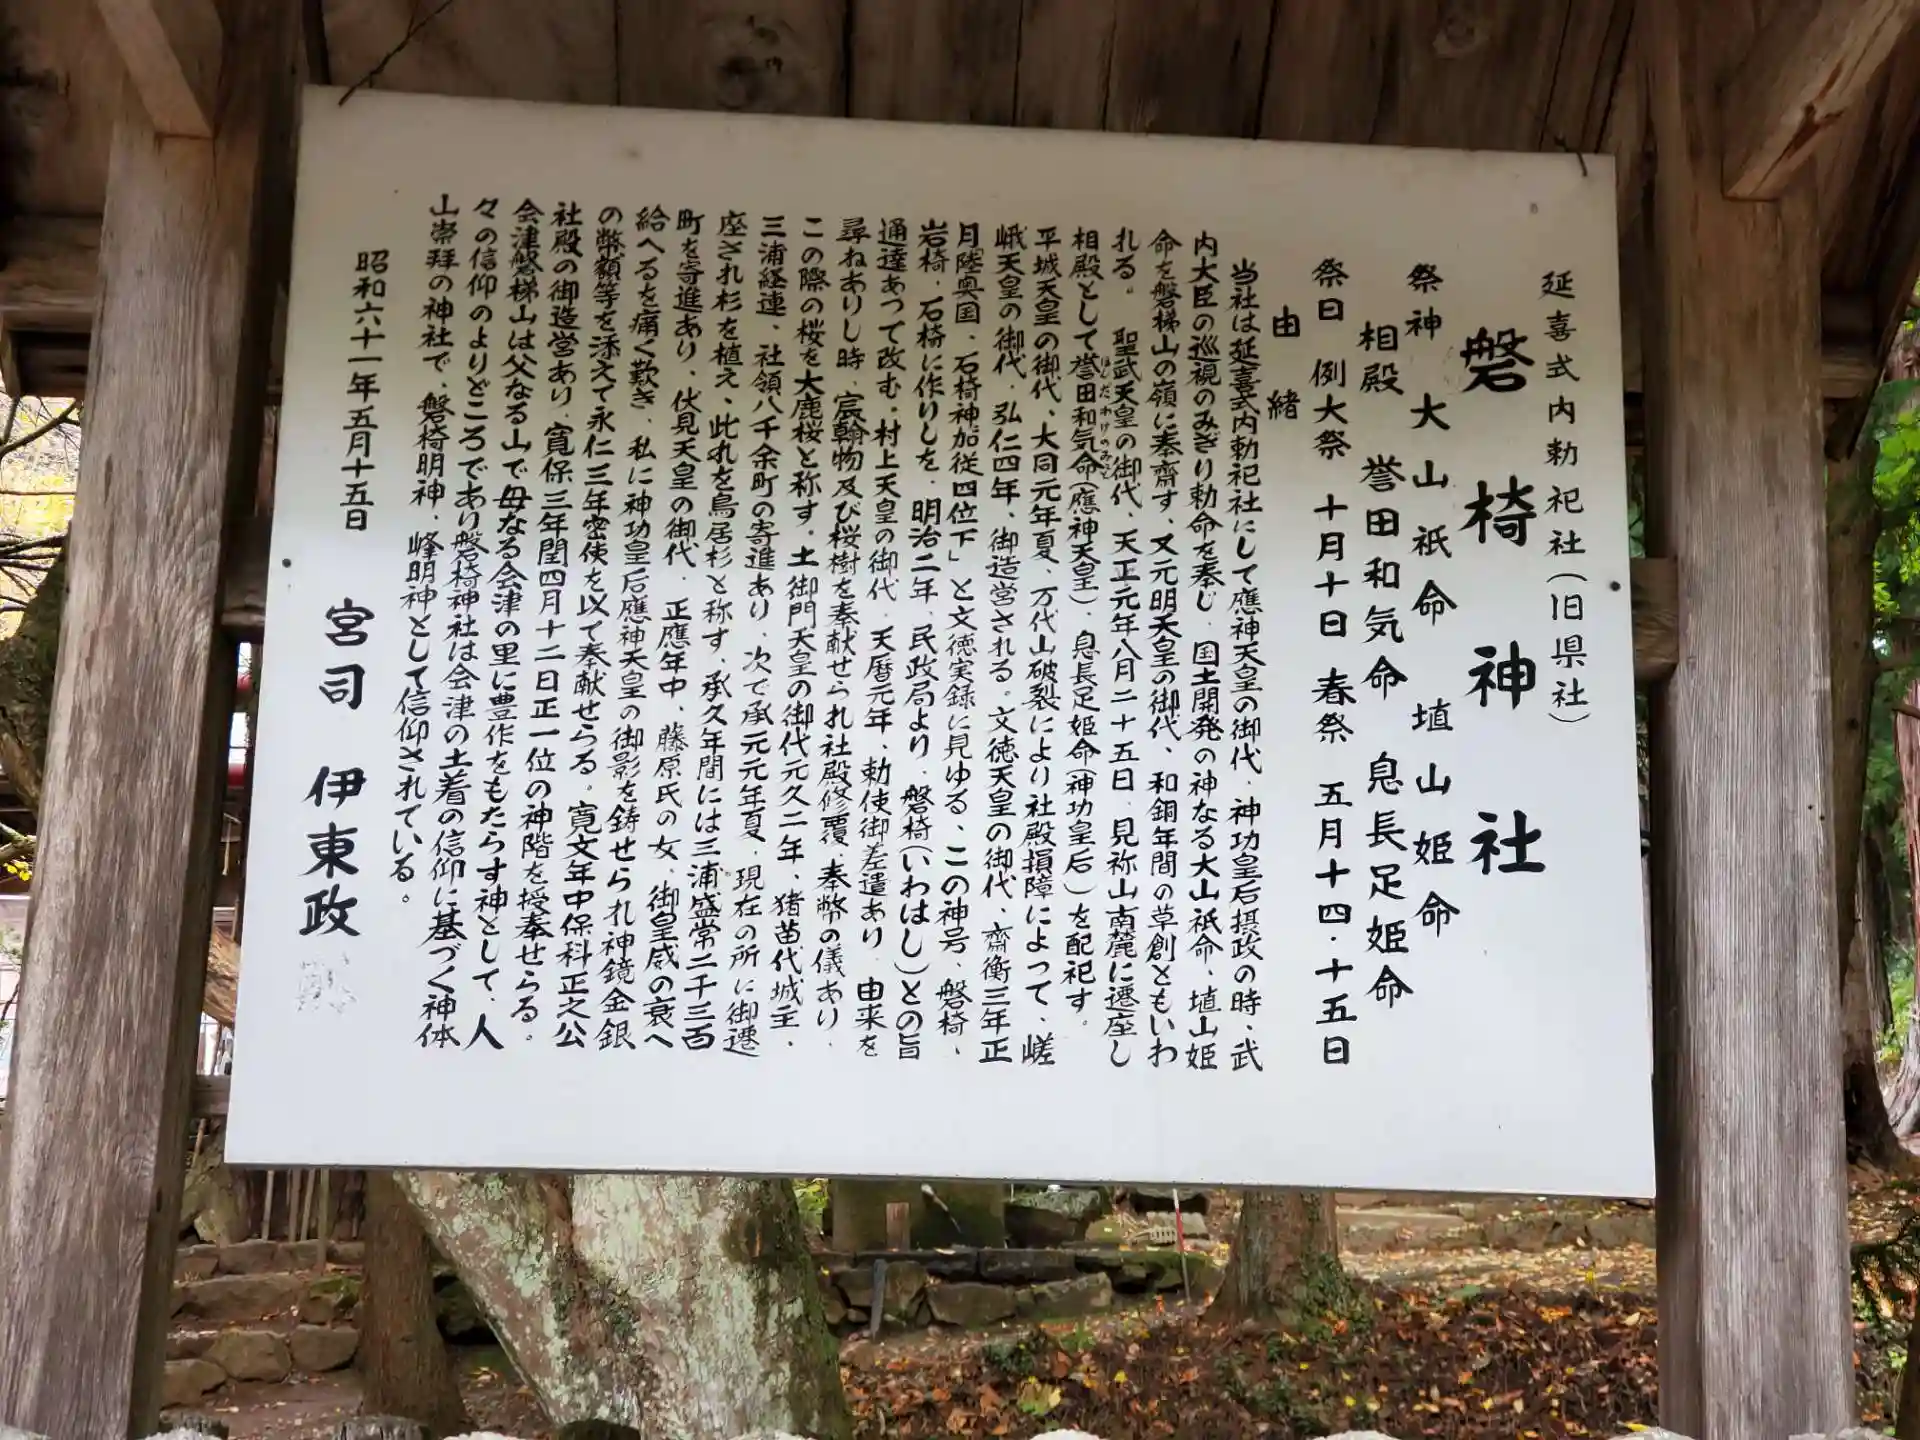 延喜式内勅祀社(旧県社)
磐椅神社
祭神 大山祇命 埴山姫命
相殿 誉田和気命 息長足姫命
祭日 例大祭 十月十日 春祭 五月十四・十五日
由緒
当社は延喜式内勅祀社にして應神天皇の御代、神功皇后摂政の時、武
内大臣の巡視のみぎり勅命を奉じ、国土開発の神なる大山祇命、埴山姫
命を磐梯山の嶺に奉齋す、又元明天皇の御代、和銅年間の草創ともいわ
れる。 聖武天皇の御代、天正元年八月二十五日、見祢山南麓に遷座し
相殿として誉田和気命(應神天皇)、息長足姫命(神功皇后)を配祀す。
ほんだわけのみこと
平城天皇の御代、大同元年夏、万代山破裂により社殿損障によって、嵯
峨天皇の御代、弘仁四年、御造営される。文徳天皇の御代、齋衡三年正
月陸奥国、石椅神加従四位下」と文徳実録に見ゆる、この神号、磐椅、
岩椅、石椅に作りしを、明治二年、民政局より、磐椅(いわはし)との旨
通達あって改む。村上天皇の御代、天暦元年、勅使御差遣あり、由来を
尋ねありし時、宸翰物及び桜樹を奉献せられ社殿修覆、奉幣の儀あり、
この際の桜を大鹿桜と称す。土御門天皇の御代元久二年、猪苗代城主、
三浦経連、社領八千余町の寄進あり、次で承元元年夏、現在の所に御遷
座され杉を植え、此れを鳥居杉と称す、承久年間には三浦盛常二千三百
町を寄進あり、伏見天皇の御代、正應年中、藤原氏の女、御皇威の衰へ
給へるを痛く歎き、私に神功皇后應神天皇の御影を鋳せられ神鏡金銀
の幣額等を添えて永仁三年密使を以て奉献せらる。寛文年中保科正之公
社殿の御造営あり、寛保三年閏四月十二日正一位の神階を授奉せらる。
会津磐梯山は父なる山で母なる会津の里に豊作をもたらす神として、人
々の信仰のよりどころであり磐椅神社は会津の土着の信仰に基づく神体
山崇拜の神社で、磐椅明神、峰明神として信仰されている。
昭和六十一年五月十五日 宮司 伊東政